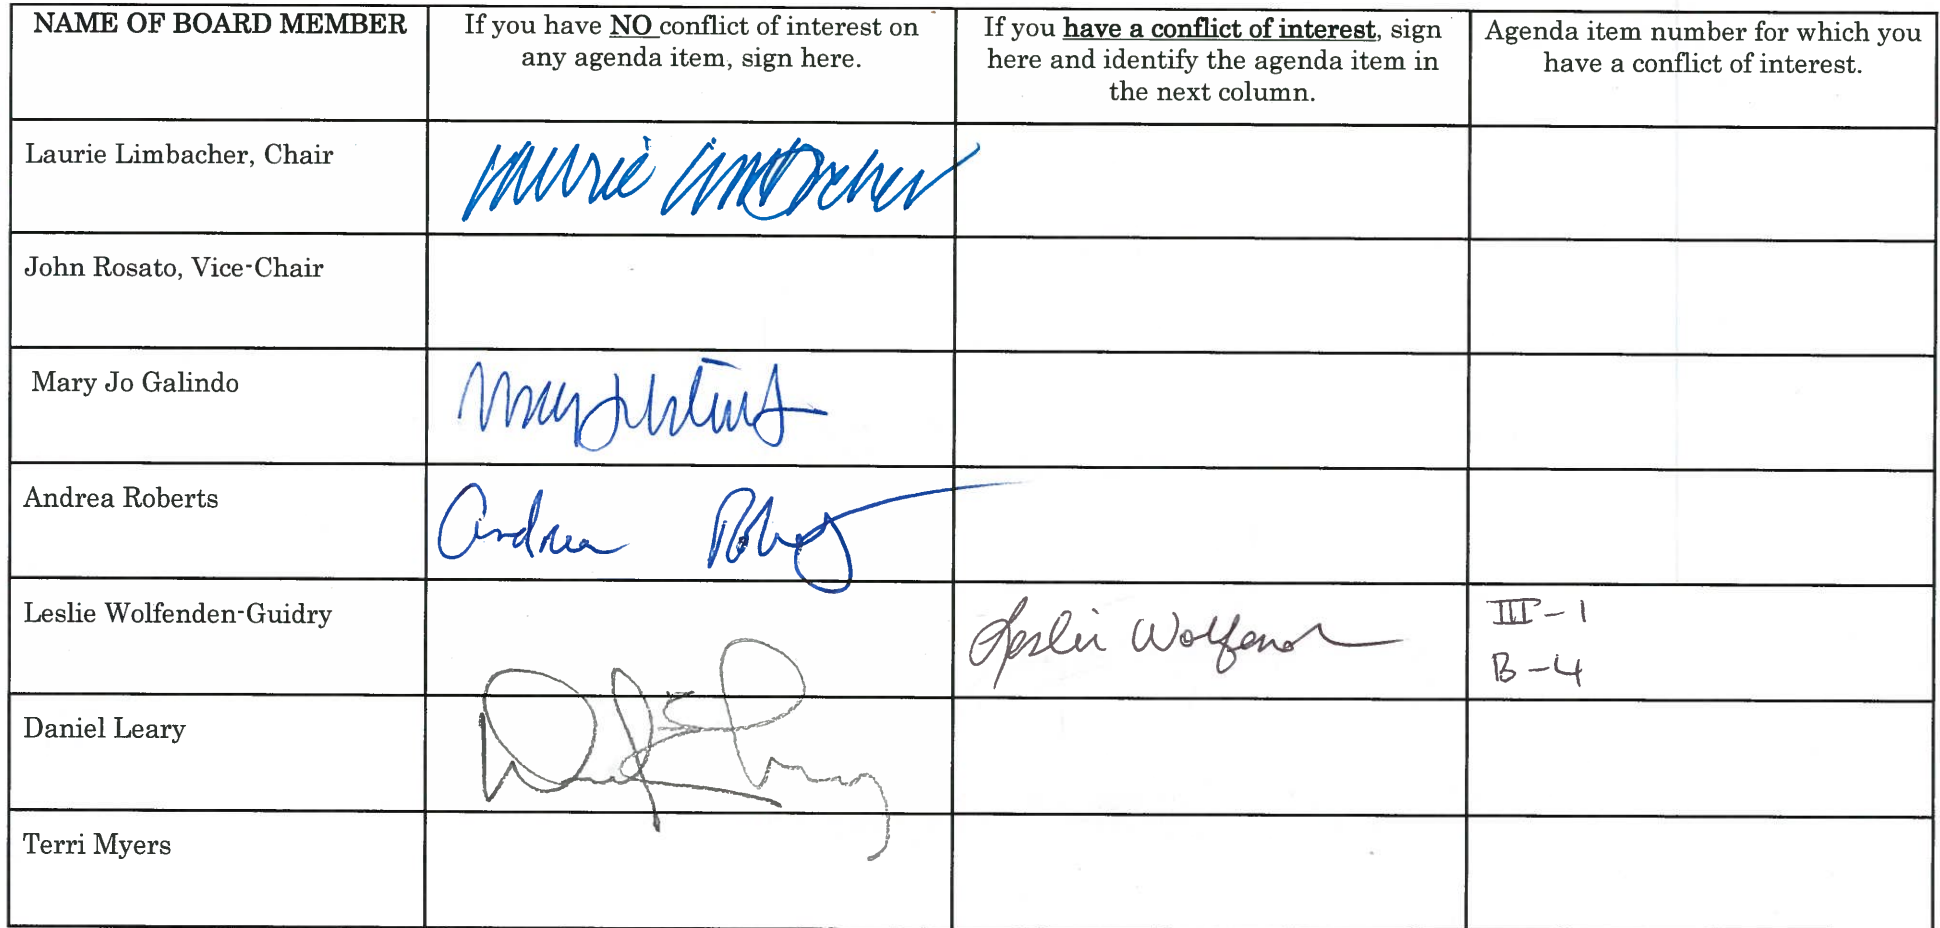 NAME OF BOARD MEMBER
If you have NO conflict of interest on
any agenda item, sign here.
If you have a conflict of interest, sign
here and identify the agenda item in
the next column.
Agenda item number for which you
have a conflict of interest.
Laurie Limbacher, Chair
Laurie Limbacher
John Rosato, Vice-Chair
Mary Jo Galindo
Mary Jo
Andrea Roberts
Andrea Roberts
Leslie Wolfenden-Guidry
Leslie Wolfenden
III-1
B-4
Daniel Leary
Terri Myers